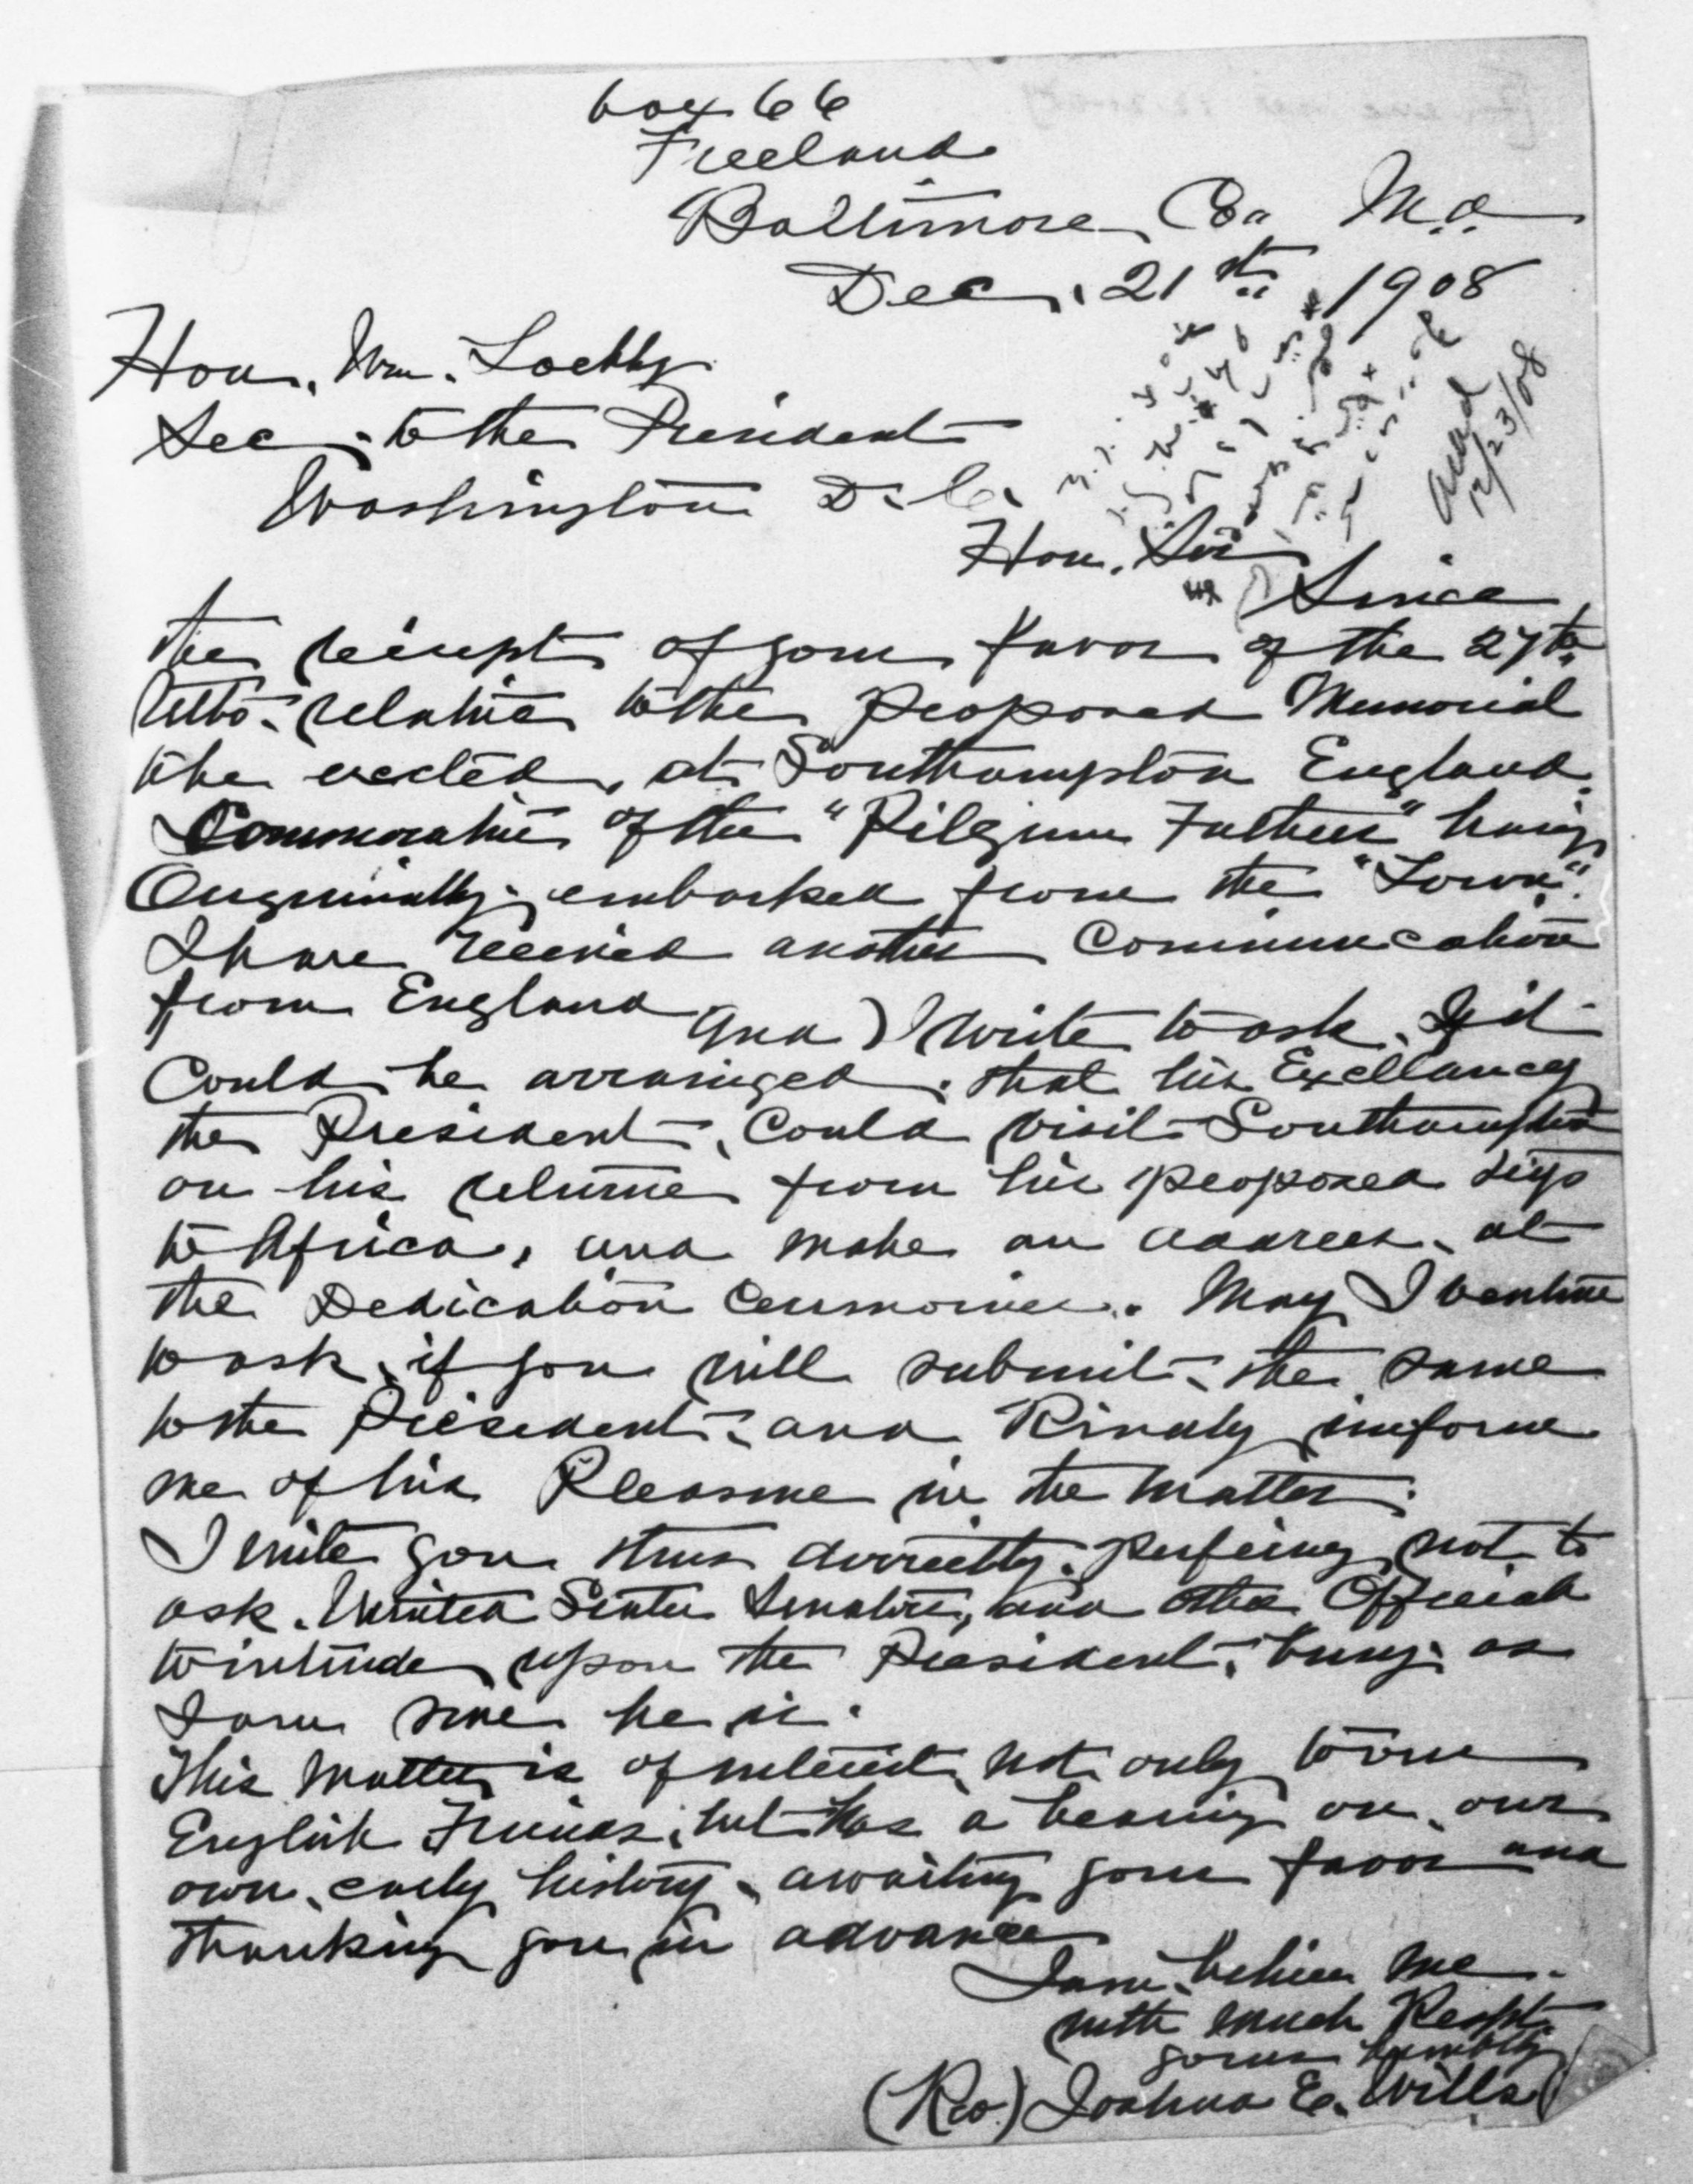 box 66
Freeland
Baltimore Co. M.d.
Dec. 21st 1908
Hon. Wm. Loebb
Sec. to the President
Washington D.C.
ansd
12/23/08
Hon. Sir
Since
the reciept of your favor of the 27th
Ulto. relative to the proposed Memorial
to be erected, at Southampton England.
Commorative of the "Pilgrim Fathers" having
Originially embarked from the "Town".
I have received another Communication
from England and I write to ask. If it
Could be arrainged. that his Excellancy
the President, Could visit Southampton
on his returne from his proposed trip
to Africa, and make an address, at
the Dedication Ceremonies. May I venture
to ask, if you will submit the same
to the President and Kindly informe
me of his Pleasure in the matter.
I write you thus dirrectly. prefering not to
ask. United States Senators, and other Officials
to intrude upon the President, busy as
I am sure he is.
This matter is of interest, not only to our
English Friends, but has a bearing on our
own early history. awaiting your favor and
thanking you in advance
I am, believe me.
with much Respt.
yours humbly
(Rev.) Joshua E. Wills